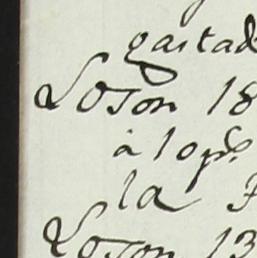 gastad
Loson 18
à 10 ps
la
Loson 13